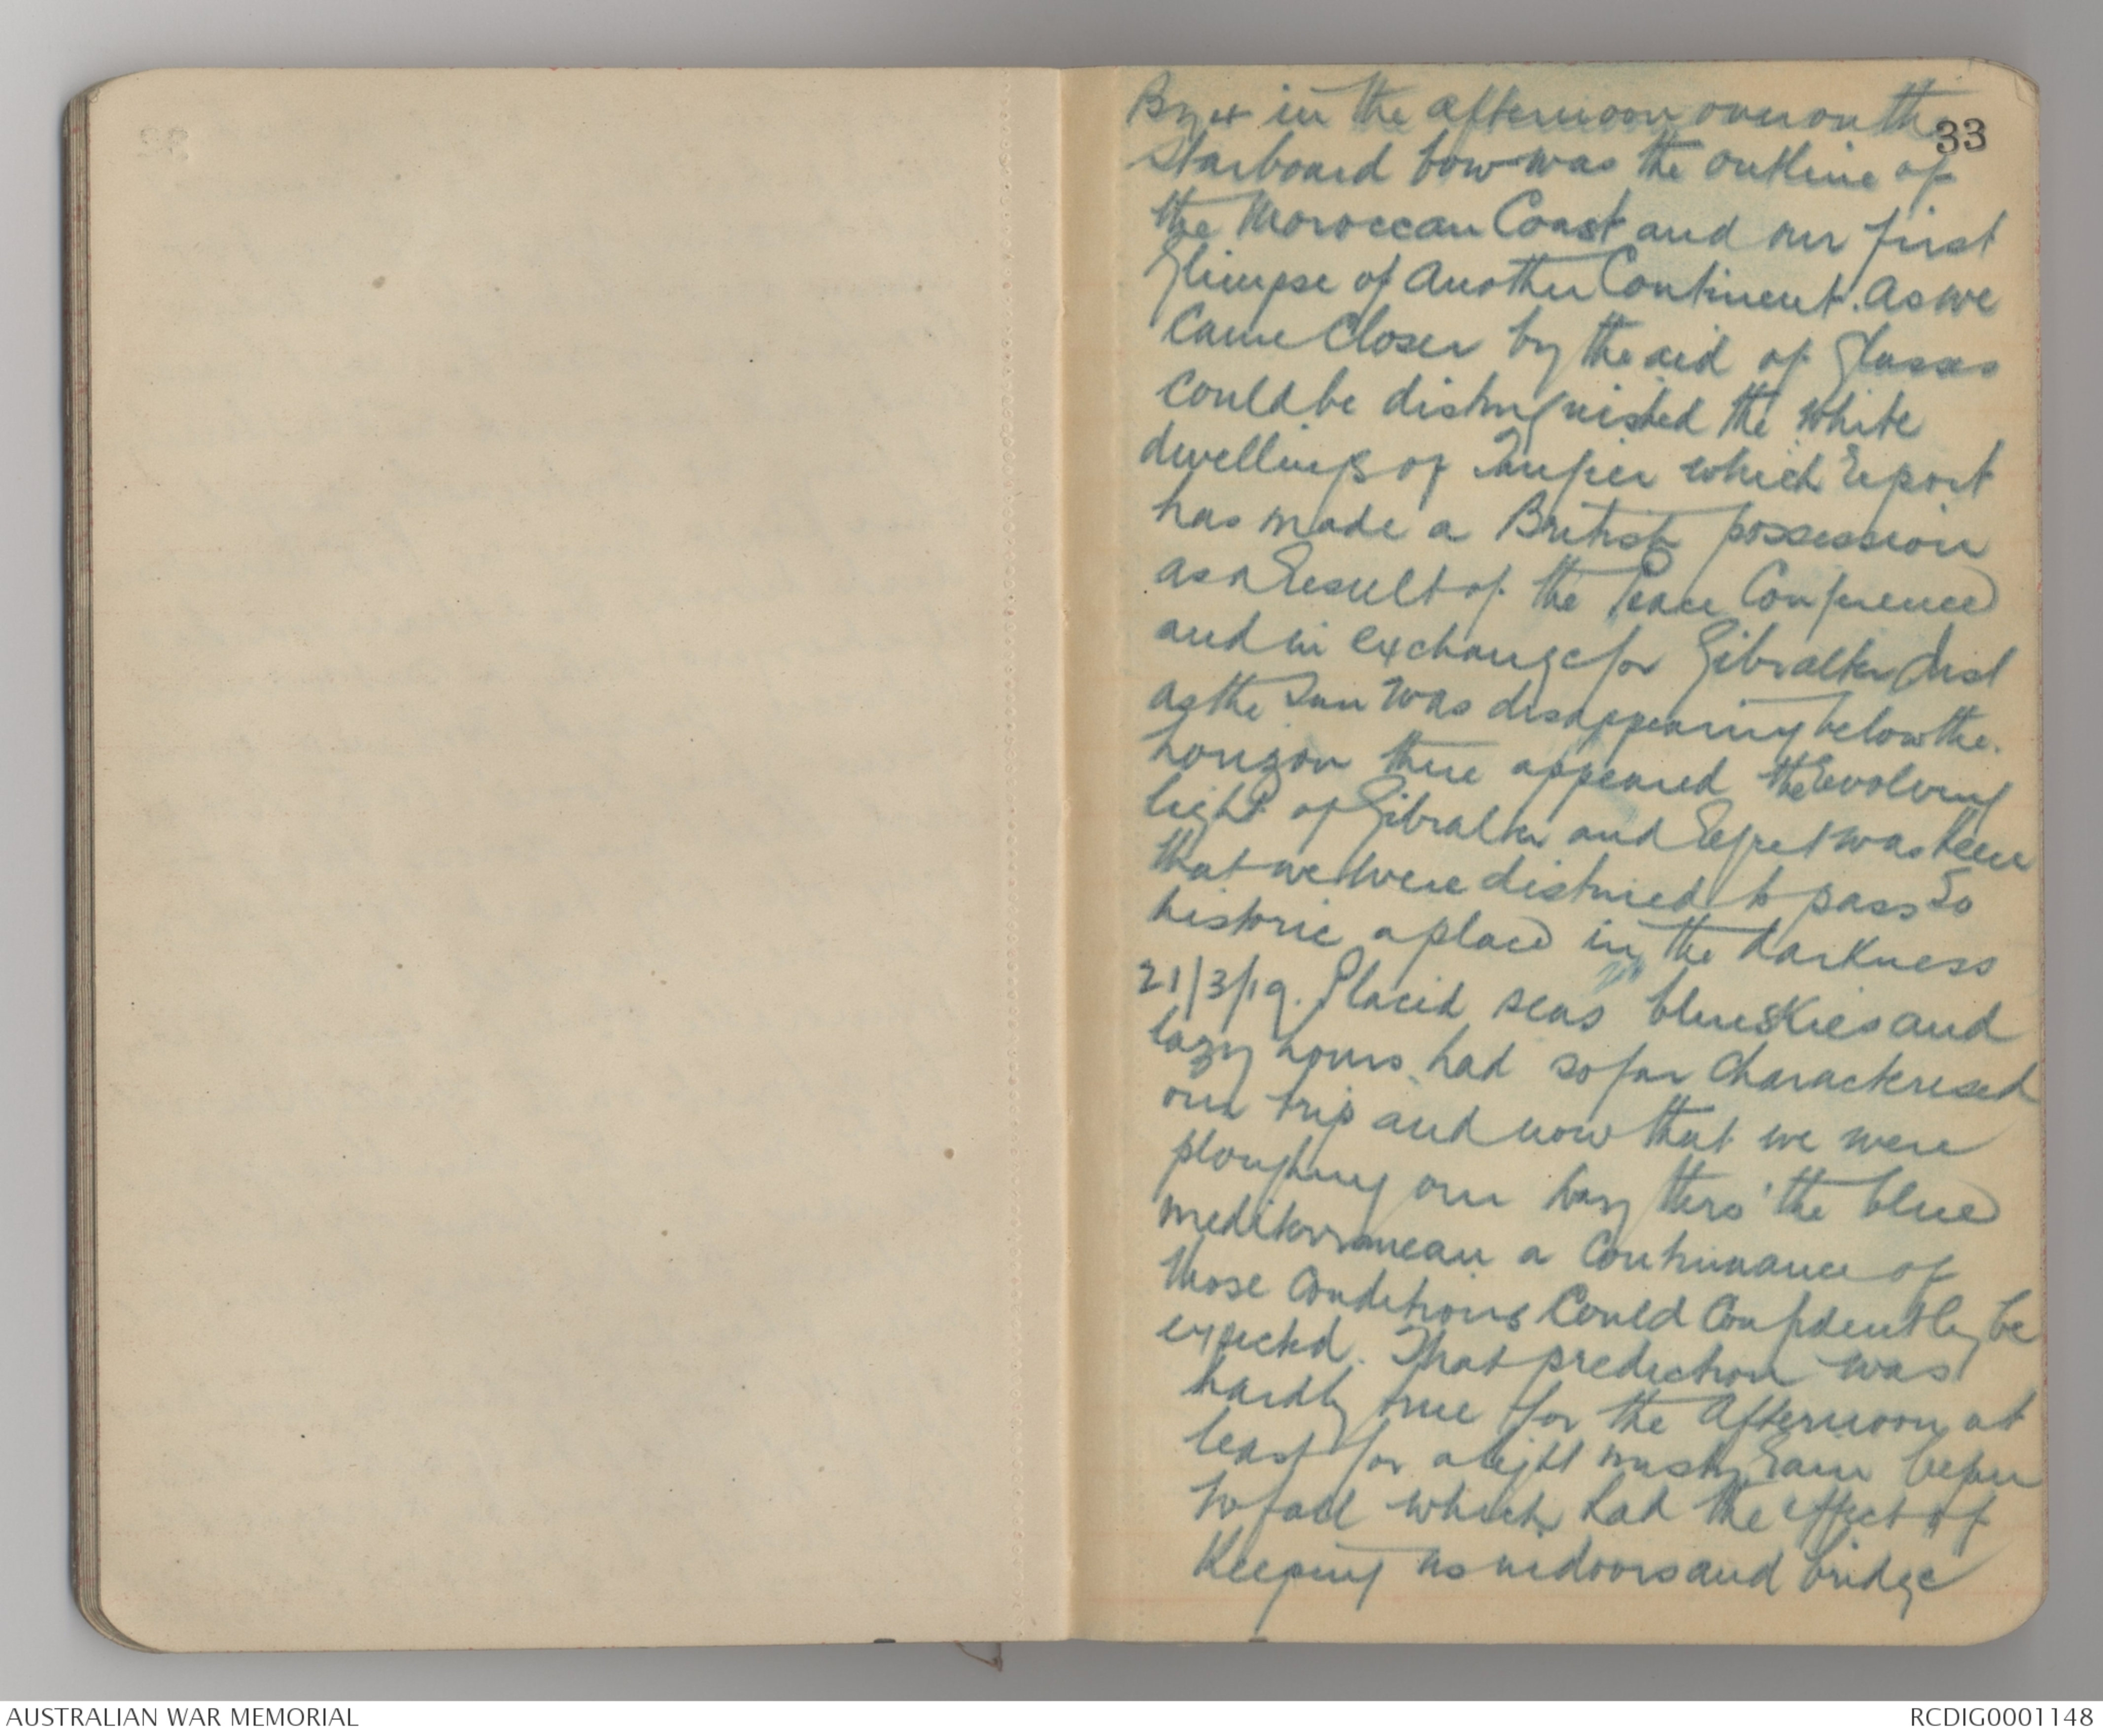 33
By 4 in the afternoon over on the
starboard bow was the outline of
the Moroccan Coast and our first
glimpse of Another Continent. As we
came closer by the aid of glasses
could be distinguished the white
dwellings of Tangier which report
has made a British possession
as a result of the Peace Conference
and in exchange for Gibraltar. Just
as the sun was disappearing below the.
horizon there appeared the revolving
light of Gibraltar and regret was keen
that we were distined to pass so
historic a place in the darkness
21/3/19. Placid seas blue skies and
lazy hours had so far characterised
our trip and now that we were
ploughing our way thro' the blue
Mediterranean a continuance of
those conditions could confidently be
expected. That prediction was
hardly true for the afternoon at
least for a light misty rain began
to fall which had the effect of
keeping us indoors and bridge
AUSTRALIAN WAR MEMORIAL
RCDIG0001148